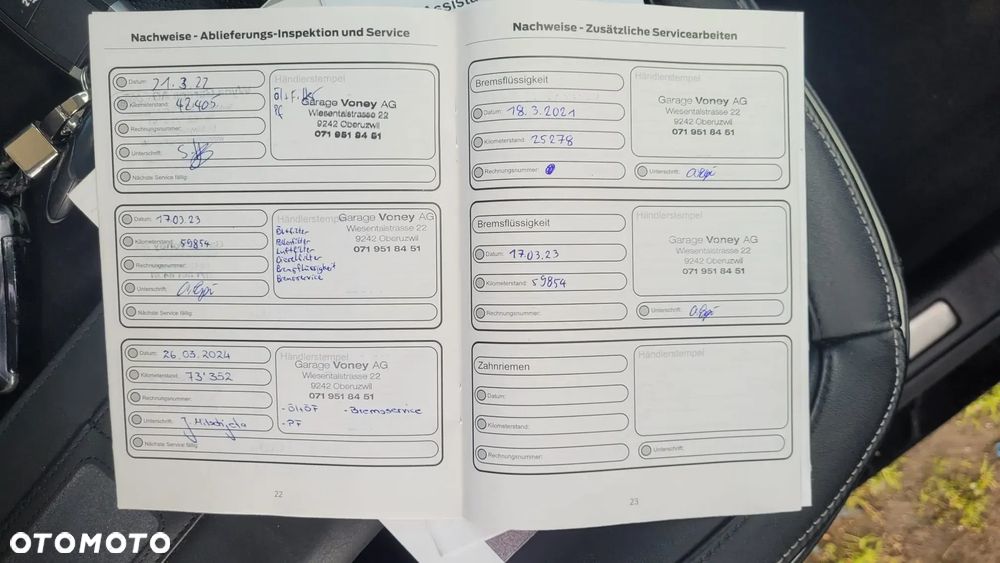 Assista
Nachweise - Ablieferungs-Inspektion und Service
Datum: 21.3.22
Händlerstempel
Garage Voney AG
Kilometerstand: 42.405
Wiesentalstrasse 22
PF
9242 Oberuzwil
Rechnungsnummer:
071 951 84 51
Unterschrift:
Nächste Service fällig:
Datum: 17.03.23
Händlerstempel
Garage Voney AG
Wiesentalstrasse 22
9242 Oberuzwil
071 951 84 51
Kilometerstand: 59854
Rechnungsnummer:
Unterschrift:
Ölfilter
Pollenfilter
Luftfilter
Dieselfilter
Bremsflüssigkeit
Bremsservice
Nächste Service fällig:
Datum: 26.03.2024
Händlerstempel
Garage Voney AG
Wiesentalstrasse 22
9242 Oberuzwil
071 951 84 51
Kilometerstand: 73'352
Rechnungsnummer:
- Öl+ÖF - Bremsservice
- PF
Unterschrift:
Nächste Service fällig:
22
Nachweise - Zusätzliche Servicearbeiten
Bremsflüssigkeit
Händlerstempel
Garage Voney AG
Wiesentalstrasse 22
9242 Oberuzwil
071 951 84 51
Datum: 18.3.2021
Kilometerstand: 25278
Rechnungsnummer:
Unterschrift:
Bremsflüssigkeit
Händlerstempel
Garage Voney AG
Wiesentalstrasse 22
9242 Oberuzwil
071 951 84 51
Datum: 17.03.23
Kilometerstand: 59854
Rechnungsnummer:
Unterschrift:
Zahnriemen
Händlerstempel
Datum:
Kilometerstand:
Rechnungsnummer:
Unterschrift:
23
OTOMOTO